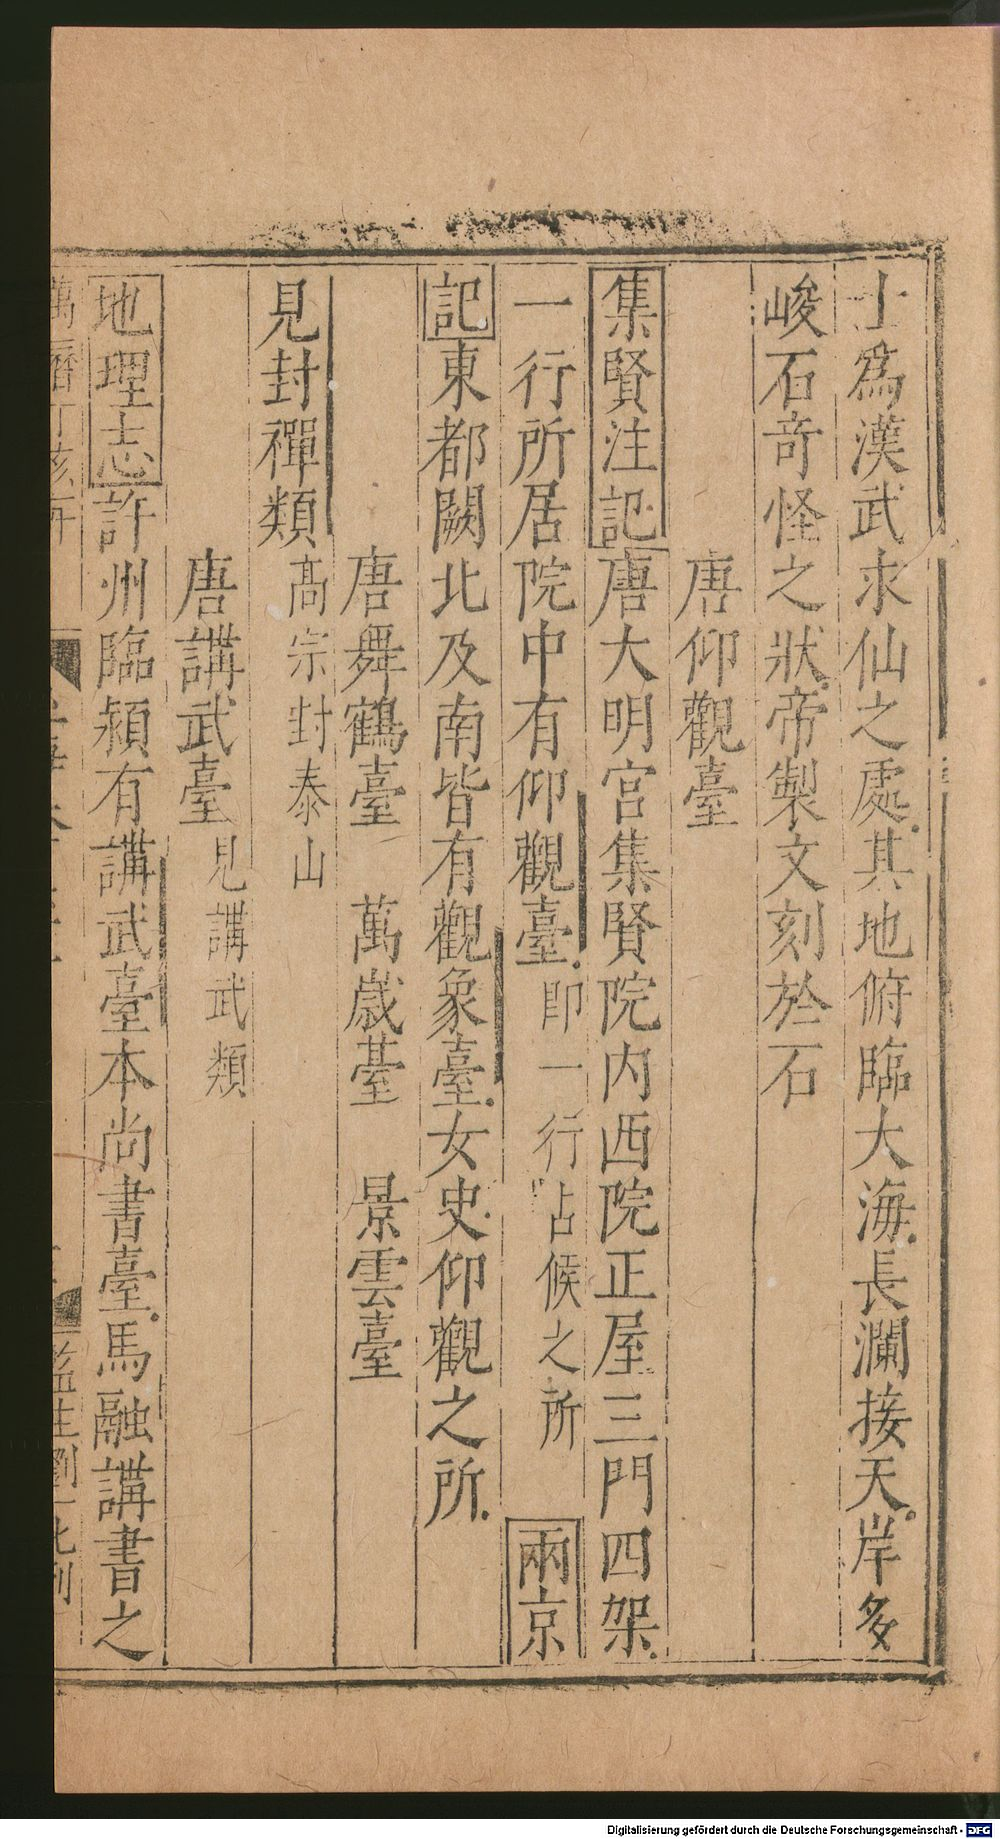 爲漢武求仙之處其地俯臨大海長瀾接天岸多
峻石奇怪之狀帝製文刻於石
唐仰觀臺
集賢注記唐大明宮集賢院内西院正屋三門四架
一行所居院中有仰觀臺即一行占候之所 兩京
記東都闕北及南皆有觀象臺女史仰觀之所
唐舞鶴臺 萬歲臺 景雲臺
見封禪類高宗封泰山
唐講武臺見講武類
地理志許州臨潁有講武臺本尚書臺馬融講書之
萬曆丁亥年
監生劉
Digitalisierung gefördert durch die Deutsche Forschungsgemeinschaft - DFG